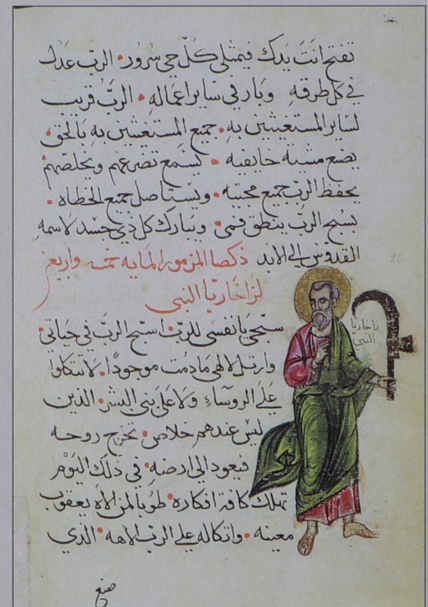 تفتح انت يدك فيمتلي كل حي سرور • الرب عدل
في كل طرقه وبار في ساير اعماله • الرب قريب
لساير المستغيثين به • جميع المستغيثين به بالحق •
يصنع مشية خايفيه • يسمع تضرعهم ويخلصهم •
يحفظ الرب جميع محبيه • ويستاصل جميع الخطاه •
بسبح الرب ينطق فمي • ويبارك كل ذي جسد لاسمه
القدوس الى الابد ذكصا المزمور المايه خمسه واربعين
لزاخاريا النبي
سبحي يا نفسي للرب • اسبح الرب في حياتي •
وارتل لالهي ما دمت موجودا • لا تتكلوا
على الروسآء ولا على بني البشر • الذين
ليس عندهم خلاص • تخرج روحه
فيعود الى ارضه • في ذلك اليوم
تهلك كافة افكاره • طوبا لمن الاه يعقوب
معينه • واتكاله على الرب الاهه • الذي
صنع
زاخاريا
النبي